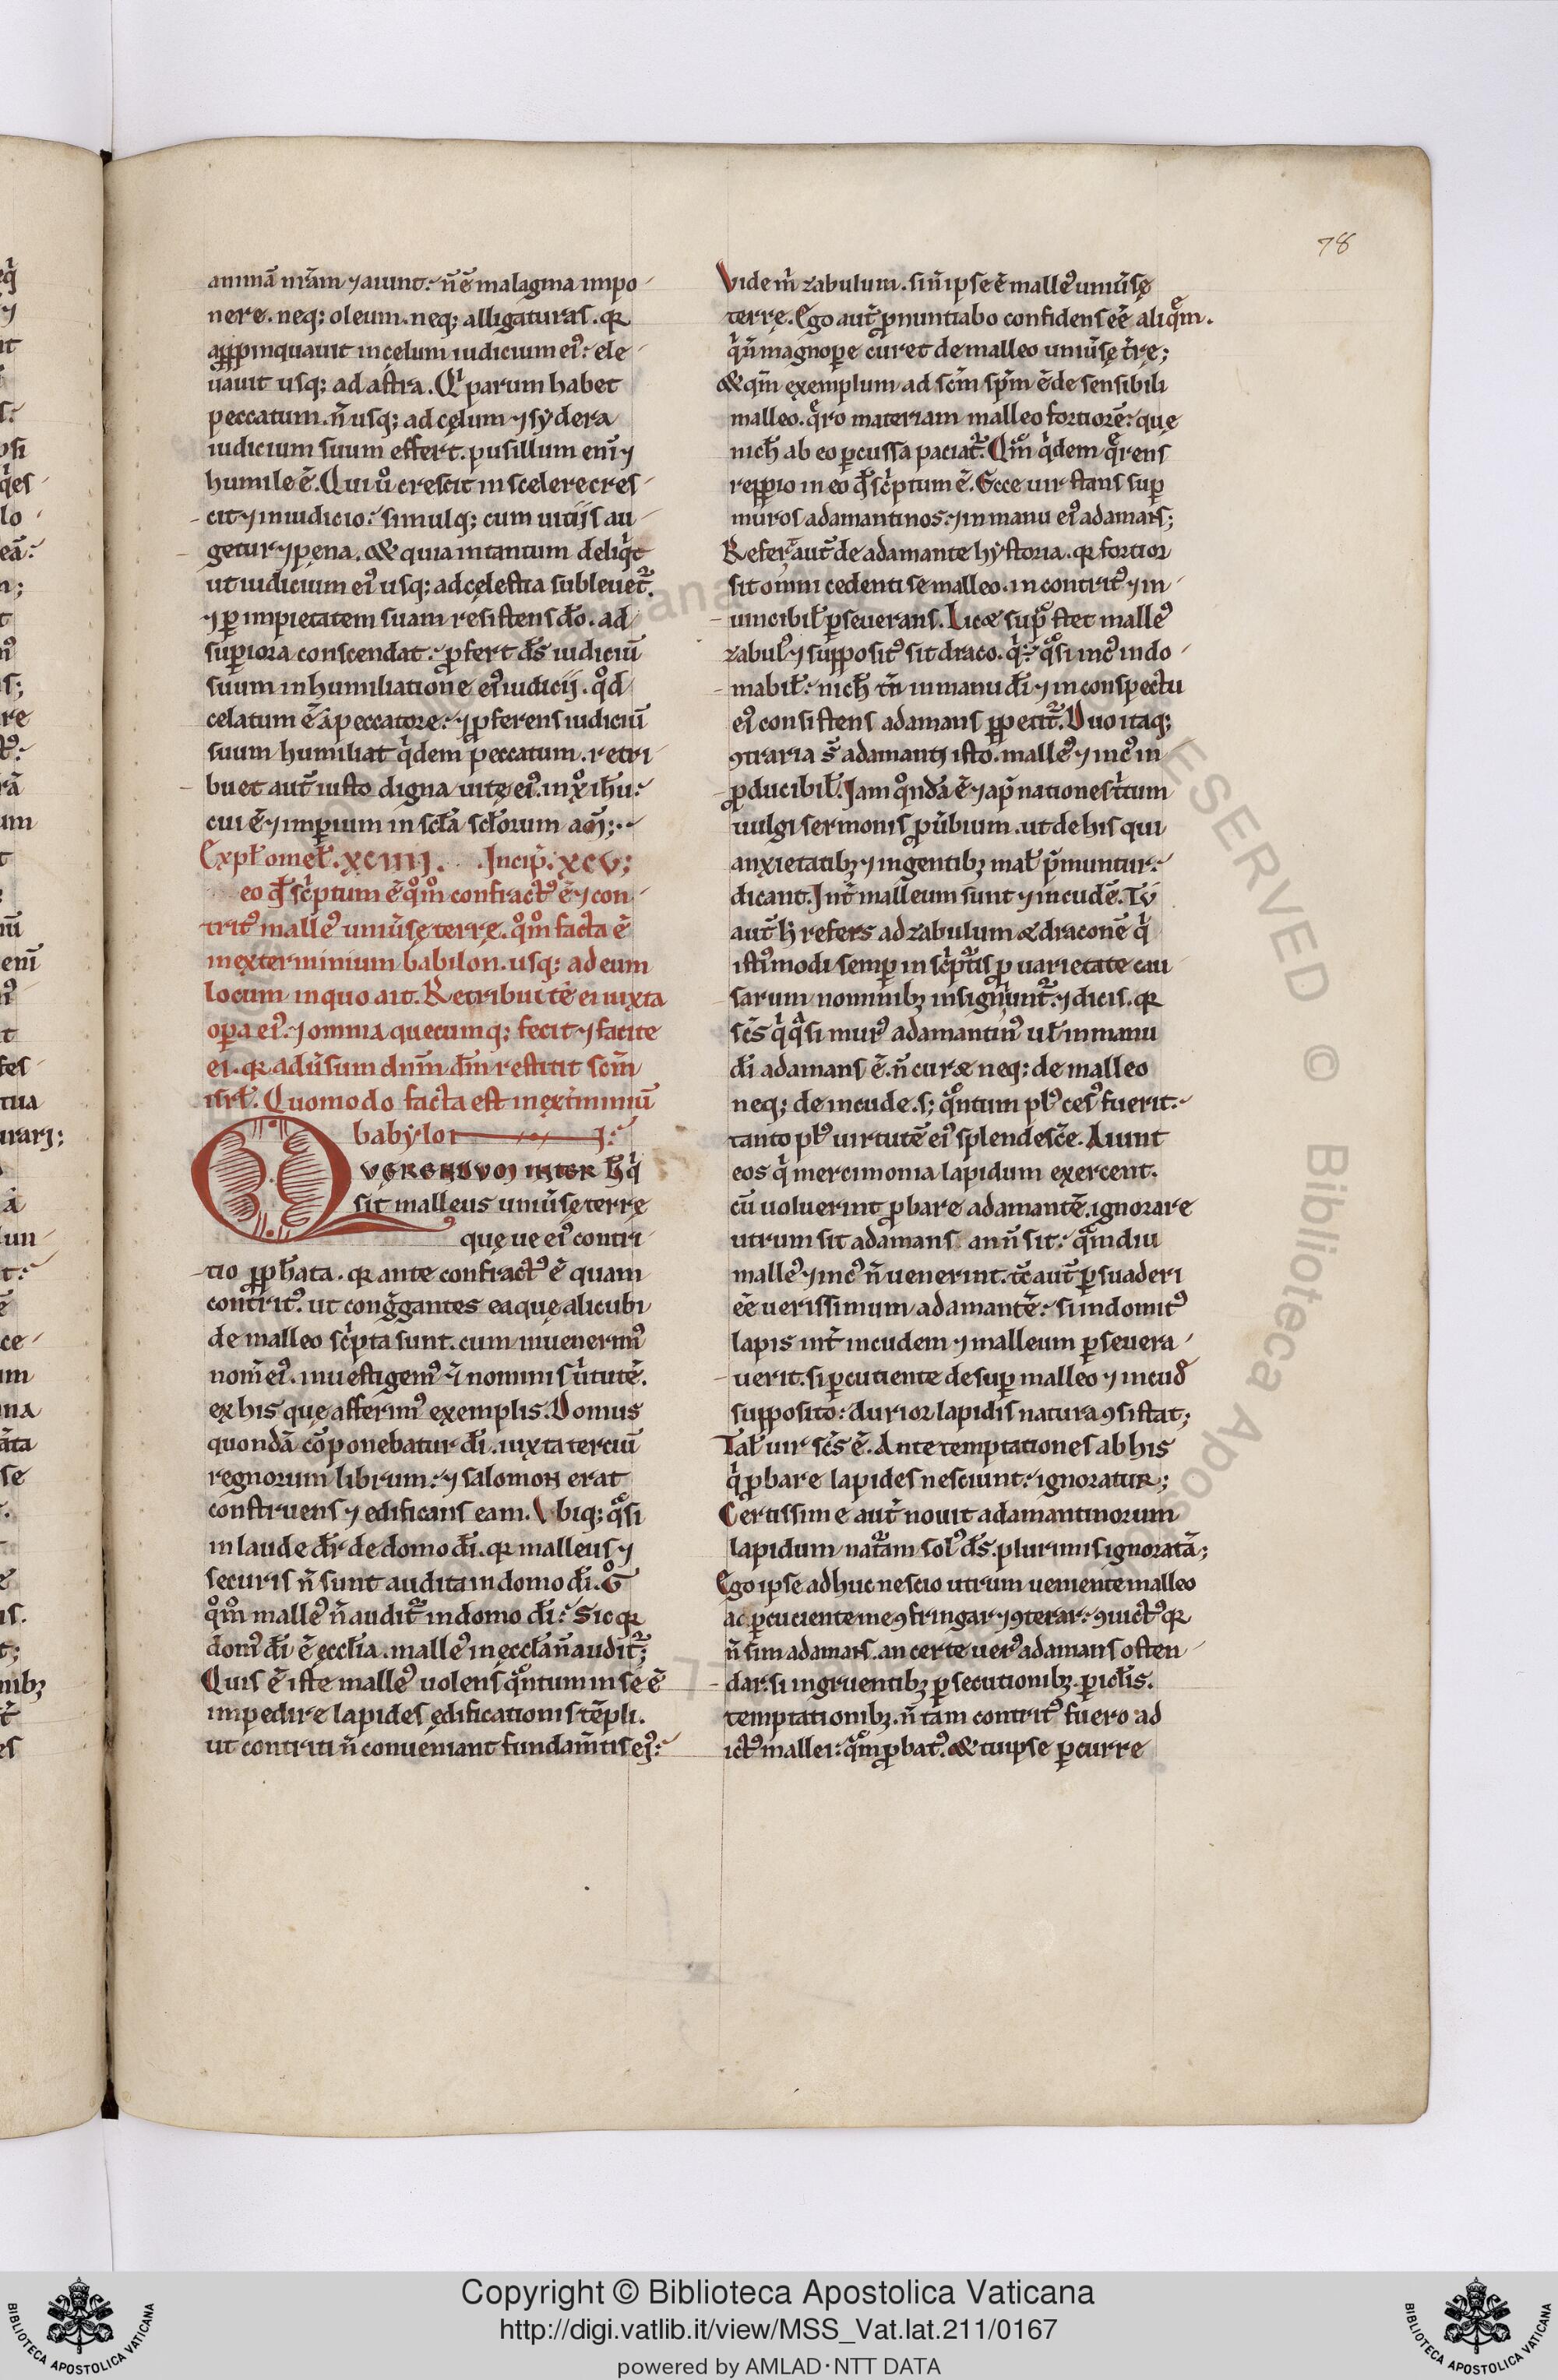 78
animā nr̄am ⁊ aiunt. n̄ ē malagma impo-
nere. neq; oleum. neq; alligaturas. q̄
apꝓpinquauit in celum iudicium ei᷒. ele-
uauit usq; ad astra. Qͥ parum habet
peccatum. n̄ usq; ad cęlum ⁊ sẏdera
iudicium suum effert. pusillum eni ⁊
humile ē. Qui ů crescit in scelere cres-
cit ⁊ in iudicio. simulq; cum uitijs au-
getur ⁊ pena. & quia in tantum deliqͥt
ut iudicium ei᷒ usq; ad cęlestia subleuet᷑.
⁊ ꝑ impietatem suam resistens dō. ad
suꝑiora conscendat. ꝓfert ds̄ iudiciū
suum in humiliatione ei᷒ iudicij. qͦd
celatum ē a peccatore. ⁊ ꝓferens iudiciū
suum humiliat qͥdem peccatum. retri
buet aut̄ iusto digna uitę ei᷒. in xͦ ih̄u.
cui ē ⁊ imꝑium in scl̄a scl̄orum am̄;
Expl̄ omel̄. XCIIII. Incip̄. XCV;
eo qd̄ scͥptum ē qͦm̄ confract᷒ ē ⁊ con-
trit᷒ malle᷒ uniūsę terre. qͦm̄ facta ē
in exterminium babilon. usq; ad eum
locum in quo ait. Retribuite ei iuxta
oꝑa ei᷒. ⁊ omnia quecumq; fecit ⁊ facite
ei. q̄ adūsum dnm̄ dm̄ restitit scm̄
isrl̄. Quomodo facta est in ext̄miniū
babẏlon:
QVERENDVM INTER h̄ qͥ
sit malleus uniūsę terrę
quę ue ei᷒ contri-
tio ꝓph̄ata. q̄ ante confract᷒ ē quam
contrit᷒. ut congͣgantes ea quę alicubi
de malleo scͥpta sunt. cum inuenerim᷒
nom̄ ei᷒. inuestigem᷒ ⁊ nominis ūtutē.
ex his quę afferim᷒ exemplis. Domus
quondā cōponebatur dī. iuxta terciū
regnorum librum. ⁊ salomon erat
construens ⁊ edificans eam. Vbiq; qͣsi
in laude dr̄ de domo dī. q̄ malleus ⁊
securis n̄ sunt audita in domo dī. gͦ
qͦm̄ malle᷒ n̄ audit᷑ in domo dī. Sic q̄
dom᷒ dī ē eccl̄ia. malle᷒ in ęccl̄a n̄ audit᷑;
Quis ē iste malle᷒ uolens qͣntum in se ē
impedire lapides ędificationis tēpli.
ut contriti n̄ conueniant fundam̄tis ei᷒.
Videm̄ zabulum. sin̄ ipse ē malle᷒ uniūsę
terrę. Ego aut̄ ꝓnuntiabo confidens eē aliqͣm.
qͥ n̄ magnoꝑe curet de malleo uniūsę tr̄ę;
& qm̄ exemplum ad scm̄ spm̄ ē de sensibili
malleo. qͣro materiam malleo fortiorē. quę
nich̄ ab eo ꝑcussa paciat᷑. Qm̄ qͥdem qͣrens
reꝑpio in eo qd̄ scͥptum ē. Ecce uir stans suꝑ
muros adamantinos. ⁊ in manu ei᷒ adamas;
Refert aut̄ de adamante hẏstoria. q̄ fortior
sit omni cedenti se malleo. in contrit᷒ ⁊ in-
uincibil̄ ꝑseuerans. Licet supͣ stet malle᷒
zabul᷒ ⁊ supposit᷒ sit draco. qͥ qͣsi inc᷒ indo-
mabil̄. nich̄ tn̄ in manu dī ⁊ in conspectu
ei᷒ consistens adamans ꝑpetit᷑. Duo itaq;
ꝯtraria s̄ adamanti isto. malle᷒ ⁊ inc᷒ in
ꝓducibil̄. Iam qͦndā ē ⁊ apͩ nationes tͥtum
uulgi sermonis ꝓūbium. ut de his qui
anxietatibꝫ ⁊ ingentibꝫ mal̄ pͥmuntur.
dicant. Int̄ malleum sunt ⁊ incudē. Tu
aut̄ h̄ refers ad zabulum & draconē qͥ
isti᷒modi semꝑ in scͥpt᷑is ꝓ uarietate cau
sarum nominibꝫ insigniunt᷑. ⁊ dicis. q̄
scs̄ qͥ qͣsi mur᷒ adamantin᷒ ul̄ in manu
dī adamans ē. n̄ curet neq; de malleo
neq; de incude. s; qͣntum pl᷒ ces᷒ fuerit.
tanto pl᷒ uirtutē ei᷒ splendescē. Aiunt
eos qͥ mercimonia lapidum exercent.
cū uoluerint ꝓbare adamantē. ignorare
utrum sit adamans an n̄ sit. qͣmdiu
malle᷒ ⁊ inc᷒ n̄ uenerint. tc̄ aut̄ ꝑsuaderi
eē uerissimum adamantē. si indomit᷒
lapis int̄ incudem ⁊ malleum ꝑseuera-
uerit. si ꝑcutiente desuꝑ malleo ⁊ incud̄
supposito. durior lapidis natura ꝯsistat;
Tal̄ uir scs̄ ē. Ante temptationes ab his
qͥ ꝓbare lapides nesciunt. ignoratur;
Certissime aut̄ nouit adamantinorum
lapidum nat᷑am sol᷒ ds̄. plurimis ignoratā;
Ego ipse adhuc nescio utrum ueniente malleo
ac ꝑcuciente me ꝯfringar ⁊ ꝯterar. ꝯuict᷒ q̄
n̄ sim adamas. an certe uer᷒ adamans osten-
dar. si ingruentibꝫ ꝑsecutionibꝫ. ꝑicl̄is.
temptationibꝫ. n̄ tam contrit᷒ fuero ad
ict᷒ mallei. qͣm ꝓbat᷒. & tu ipse ꝑcurre
Copyright © Biblioteca Apostolica Vaticana
http://digi.vatlib.it/view/MSS_Vat.lat.211/0167
powered by AMLAD·NTT DATA
BIBLIOTECA APOSTOLICA VATICANA
BIBLIOTECA APOSTOLICA VATICANA